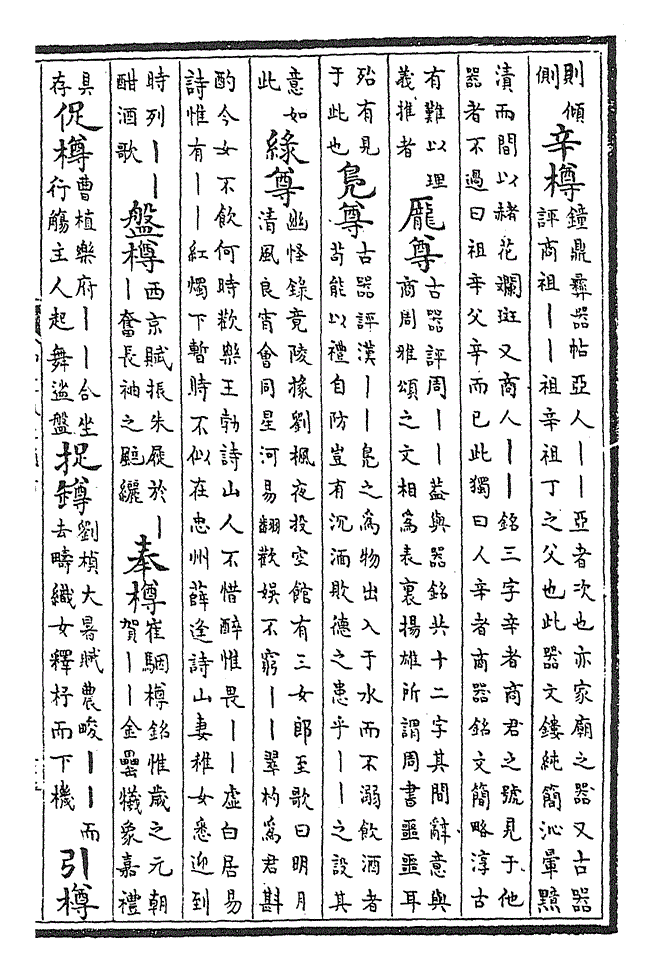 則傾側辛樽鐘鼎彝器帖亞人丨丨亞者次也亦家廟之器又古器評商祖丨丨祖辛祖丁之父也此器文鏤純簡沁暈黯
漬而間以赭花斕斑又商人丨丨銘三字辛者商君之號見于他器者不過曰祖辛父辛而已此獨曰人辛者商器銘文簡略淳古
有難以理義推者龎尊古器評周丨丨蓋與器銘共十二字其間辭意與商周雅頌之文相為表裏揚雄所謂周書噩噩耳
殆有見于此也鳬尊古器評漢丨丨鳬之為物出入于水而不溺飲酒者苟能以禮自防豈有沉湎敗德之患乎丨丨之設其
意如此緣尊幽怪錄竟陵掾劉楓夜投空館有三女郎至歌曰明月清風良宵會同星河易翻歡娱不窮丨丨翠杓為君斟
酌今女不飲何時歡樂王勃詩山人不惜醉惟畏丨丨虚白居易詩惟有丨丨紅燭下暫時不似在忠州薛逢詩山妻稚女悉迎到
時列丨丨酣酒歌盤樽西京賦振朱屣於丨丨奮長袖之颯纚奉樽崔駰樽銘惟歲之元朝賀丨丨金罍犧象嘉禮
具存促樽曹植樂府丨丨合坐行觴主人起舞娑盤捉鐏劉楨大暑賦農畯丨丨而去疇織女釋杼而下機引樽